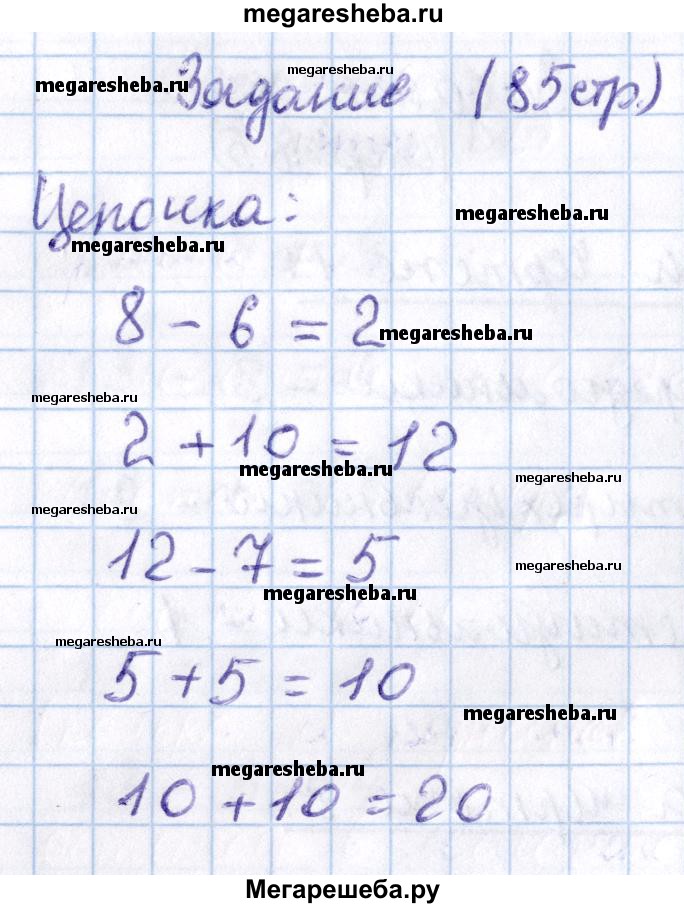 megaresheba.ru
megaresheba.ru
Задание (85стр.)
megaresheba.ru
Цепочка:
megaresheba.ru
megaresheba.ru
8 - 6 = 2
megaresheba.ru
megaresheba.ru
2 + 10 = 12
megaresheba.ru
megaresheba.ru
megaresheba.ru
12 - 7 = 5
megaresheba.ru
megaresheba.ru
megaresheba.ru
5 + 5 = 10
megaresheba.ru
megaresheba.ru
10 + 10 = 20
Мегарешеба.ру